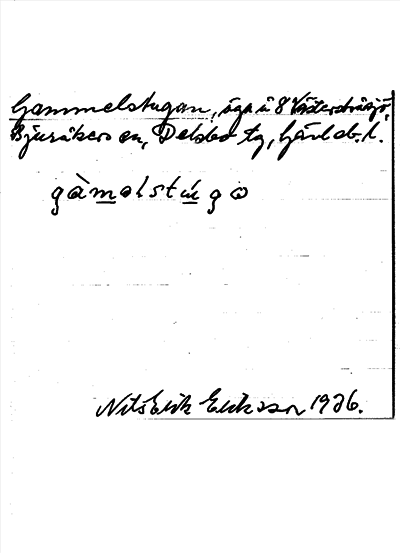 Gammelstugan, äga å 8 Västerstråsjö,
Bjuråkers sn, Delsbo tg, Gävleb. l.
gàmalstúgo
Nils Erik Eriksson 1926.